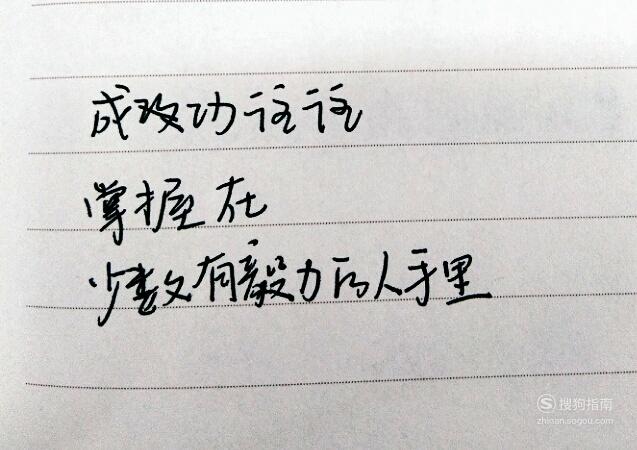 成攻功往往
掌握在
少数有毅力的人手里
搜狗指南
zhinan.sogou.com